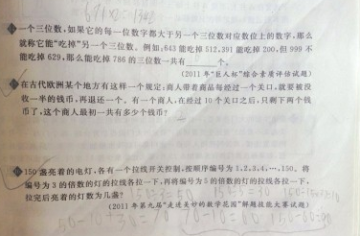 一个三位数,如果它的每一位数字都大于另一个三位数对应数位上的数字,那么
就称它能“吃掉”另一个三位数。例如:643能吃掉512,391能吃掉200,但999不
能吃掉629,那么能吃掉786的三位数一共有______个。
(2011年“巨人杯”综合素质评估试题)
在古代欧洲某个地方有这样一个规定:商人带着商品每经过一个关口,就要被没
收一半的钱币,再退还一个。有一个商人,在经过10个关口之后,只剩下两个钱
币了,这个商人最初一共有多少个钱币?
150盏亮着的电灯,各有一个拉线开关控制,按顺序编号为1,2,3,4,…,150。将
编号为3的倍数的灯的拉线各拉一下,再将编号为5的倍数的灯的拉线各拉一下,
拉完后亮着的灯数为几盏?
(2011年第九届“走进美妙的数学花园”解题技能大赛试题)